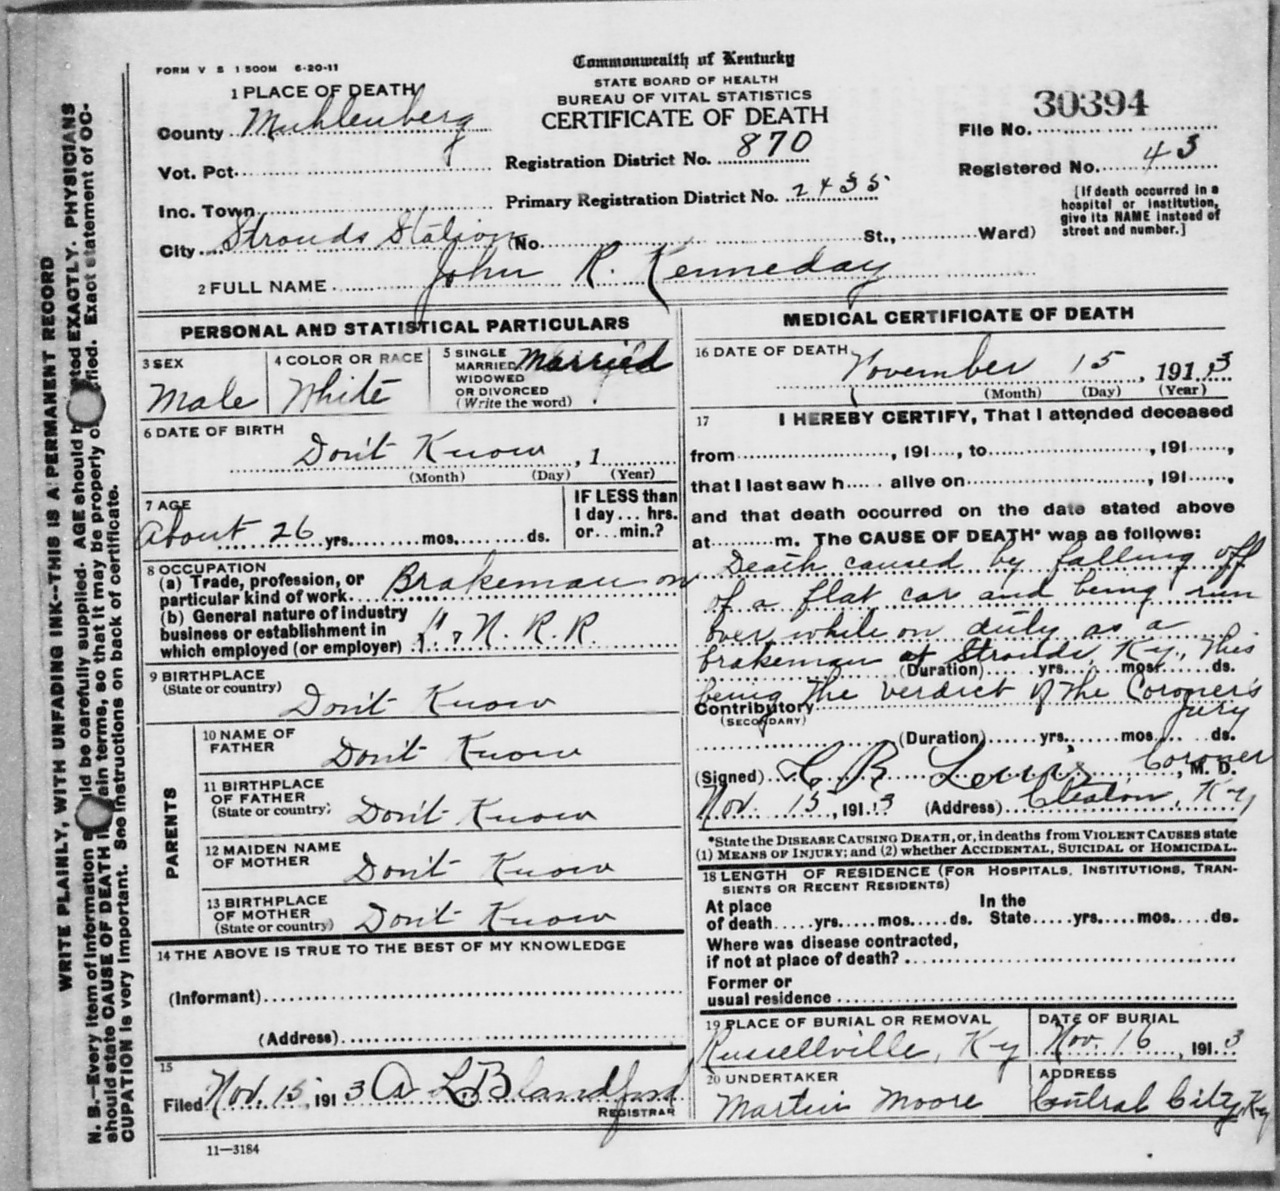 FORM V S 1 500M 6-20-11
Commonwealth of Kentucky
STATE BOARD OF HEALTH
BUREAU OF VITAL STATISTICS
CERTIFICATE OF DEATH
1 PLACE OF DEATH
County Muhlenberg
Vot. Pct.
Inc. Town
City Strouds Station (No. St., Ward)
Registration District No. 870
Primary Registration District No. 2435
File No. 30394
Registered No. 43
[If death occurred in a
hospital or institution,
give its NAME instead of
street and number.]
2 FULL NAME John R. Kenneday
PERSONAL AND STATISTICAL PARTICULARS
3 SEX
Male
4 COLOR OR RACE
White
5 SINGLE
MARRIED
WIDOWED
OR DIVORCED
(Write the word)
Married
6 DATE OF BIRTH
Don't Know , 1
(Month) (Day) (Year)
7 AGE
About 26 yrs. mos. ds.
IF LESS than
1 day... hrs.
or... min.?
8 OCCUPATION
(a) Trade, profession, or
particular kind of work Brakeman on
(b) General nature of industry
business or establishment in
which employed (or employer) L. & N. R. R.
9 BIRTHPLACE
(State or country)
Don't Know
PARENTS
10 NAME OF
FATHER
Don't Know
11 BIRTHPLACE
OF FATHER
(State or country)
Don't Know
12 MAIDEN NAME
OF MOTHER
Don't Know
13 BIRTHPLACE
OF MOTHER
(State or country)
Don't Know
14 THE ABOVE IS TRUE TO THE BEST OF MY KNOWLEDGE
(Informant)
(Address)
15
Filed Nov. 15, 1913 A L. Blandford
REGISTRAR
11—3184
MEDICAL CERTIFICATE OF DEATH
16 DATE OF DEATH
November 15, 1913
(Month) (Day) (Year)
17 I HEREBY CERTIFY, That I attended deceased
from , 191...., to , 191....,
that I last saw h..... alive on , 191....,
and that death occurred on the date stated above
at.........m. The CAUSE OF DEATH* was as follows:
Death caused by falling off
of a flat car and being run
over while on duty as a
brakeman at Strouds, Ky., This
(Duration) yrs. mos. ds.
being The verdict of The Coroner's
Contributory jury
(SECONDARY)
(Duration) yrs. mos. ds.
(Signed) C R Lewis, Coroner, M. D.
Nov. 15, 1913 (Address) Cleaton, Ky
*State the DISEASE CAUSING DEATH, or, in deaths from VIOLENT CAUSES state
(1) MEANS OF INJURY; and (2) whether ACCIDENTAL, SUICIDAL or HOMICIDAL.
18 LENGTH OF RESIDENCE (FOR HOSPITALS, INSTITUTIONS, TRAN-
SIENTS OR RECENT RESIDENTS)
At place In the
of death.....yrs.....mos.....ds. State.....yrs.....mos.....ds.
Where was disease contracted,
if not at place of death?
Former or
usual residence
19 PLACE OF BURIAL OR REMOVAL
Russellville, Ky
DATE OF BURIAL
Nov. 16, 1913
20 UNDERTAKER
Martin Moore
ADDRESS
Central City, Ky
WRITE PLAINLY, WITH UNFADING INK--THIS IS A PERMANENT RECORD
N. B.—Every item of information should be carefully supplied. AGE should be stated EXACTLY. PHYSICIANS
should state CAUSE OF DEATH in plain terms, so that it may be properly classified. Exact statement of OC-
CUPATION is very important. See instructions on back of certificate.